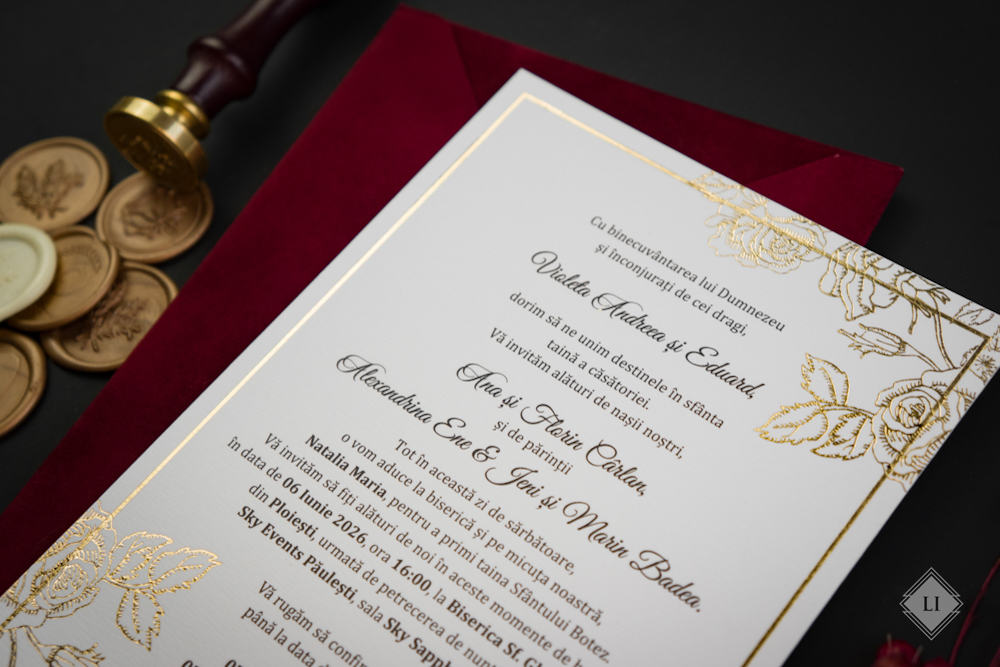 Cu binecuvântarea lui Dumnezeu
și înconjurați de cei dragi,
Violeta Andreea și Eduard,
dorim să ne unim destinele în sfânta
taină a căsătoriei.
Vă invităm alături de nașii noștri,
Ana și Florin Cârlan,
și de părinții
Alexandrina Ene & Jeni și Marin Badea.
Tot în această zi de sărbătoare,
o vom aduce la biserică și pe micuța noastră,
Natalia Maria, pentru a primi taina Sfântului Botez.
Vă invităm să fiți alături de noi în aceste momente de
în data de 06 Iunie 2026, ora 16:00, la Biserica Sf.
din Ploiești, urmată de petrecerea de
Sky Events Păulești, sala Sky
Vă rugăm să
până la data
LI